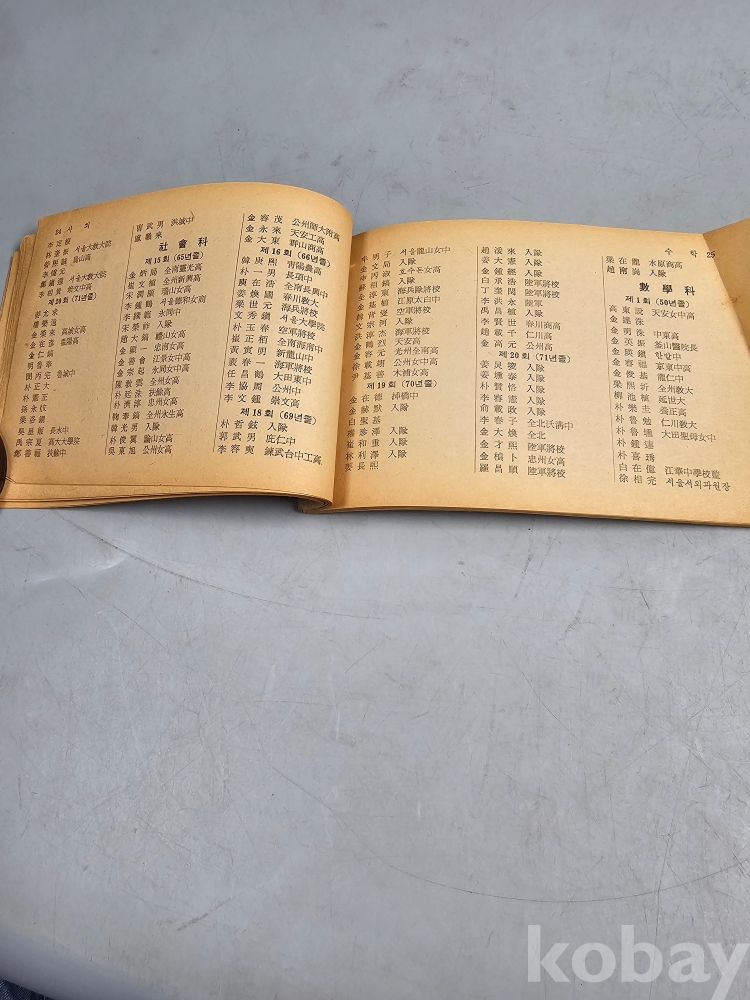 24 사 회
李定馥
林憲振 서울大敎大院
李相貴 燦文中高
제20회 (71년졸)
姜允求
金榮來 高敞女高
金仁鎬
明魯華
朴正大
朴憲正
吳昌履 長水中
禹宗夏 高大大學院
鄭善福 扶餘中
曺武男 洪城中
盧義來
社會科
제15회 (65년졸)
金炳局 全南靈光高
崔文植 全州新興高
宋潤顯 瑞山女高
李鍾鶴 서울德和女商
李國範 永同中
宋榮酢 入隊
趙大鎬 禮山女高
金顯一 忠南女高
金善會 江景女中高
金宗起 永同女中高
陳敦雲 全州女高
朴魁洙 扶餘高
朴濟淳 忠州女高
鞠奉鎬 全州永生高
韓光男 入隊
朴俊翼 論山女高
吳東旭 公州女高
金容茂 公州師大附高
金永來 天安工高
金大東 群山商高
제16회 (66년졸)
韓庚熙 靑陽農高
朴一男 長項中
庾在浩 全南長興中
姜煥國 春川敎大
梁世元 海兵將校
文秀鎭 서울大學院
朴玉春 空軍將校
崔正相 全南海南中
黃寅明 新龍山中
裵春一 海軍將校
任昌鶴 大田東中
李協周 公州中
李文鍾 崇文高
제18회 (69년졸)
朴哲鉉 入隊
郭武男 庇仁中
李容奭 練武台中工高
수 학 25
牟男子 서울龍山女中
金文局 入隊
申丙淑 호수돈女高
蘇相鎬 入隊
金淳東 海兵隊將校
金基顧 江原太白中
韓背燮 空軍將校
文宗河 入隊
洪淳杰 海軍將校
金鶴烈 天安高
金容元 光州全南高
徐載翅 公州女中高
尹基善 木浦女高
제19회 (70년졸)
金在德 挿橋中
金赫默 入隊
白聖基
權珍澤 入隊
崔和重 入隊
林利澤 入隊
姜長熙
趙浚來 入隊
姜大憲 入隊
金鍾經 入隊
白承浩 陸軍將校
丁奎閔 陸軍將校
李洪永 陸軍
禹昌植 入隊
李賢世 春川商高
趙載千 仁川高
金高元 公州高
제20회 (71년졸)
姜炅駿 入隊
姜壎泰 入隊
朴贊恪 入隊
李容憲 入隊
俞載政 入隊
李春子 全北沃溝中
金大煥 全北
金才熙 陸軍將校
金楨卜 忠州女高
羅昌順 陸軍將校
梁在龍 水原商高
趙南崗 入隊
數學科
제1회 (50년졸)
高東説 天安女中高
金逢洙
金男洙 中東高
金英振 釜山醫院長
金瑛鎭 한밭中
金容福 京東中高
金俊基 龍仁中
梁熙圻 全州敎大
柳池植 延世大
朴樂圭 義正高
朴魯勉 仁川敎大
朴魯雄 大田聖母女中
朴鍾連
朴喜琇
白在億 江華中學校監
徐相完 서울서외과원장
kobay